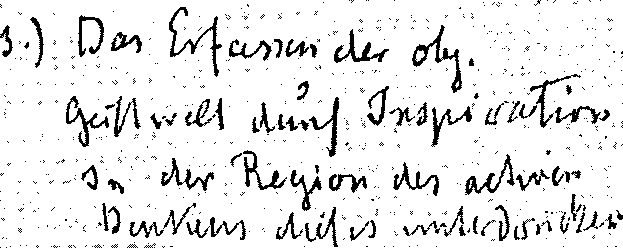 3.) Das Erfassen der obj.
Geistwelt durch Inspiration
In der Region des activen
Denkens dieses unterdrücken